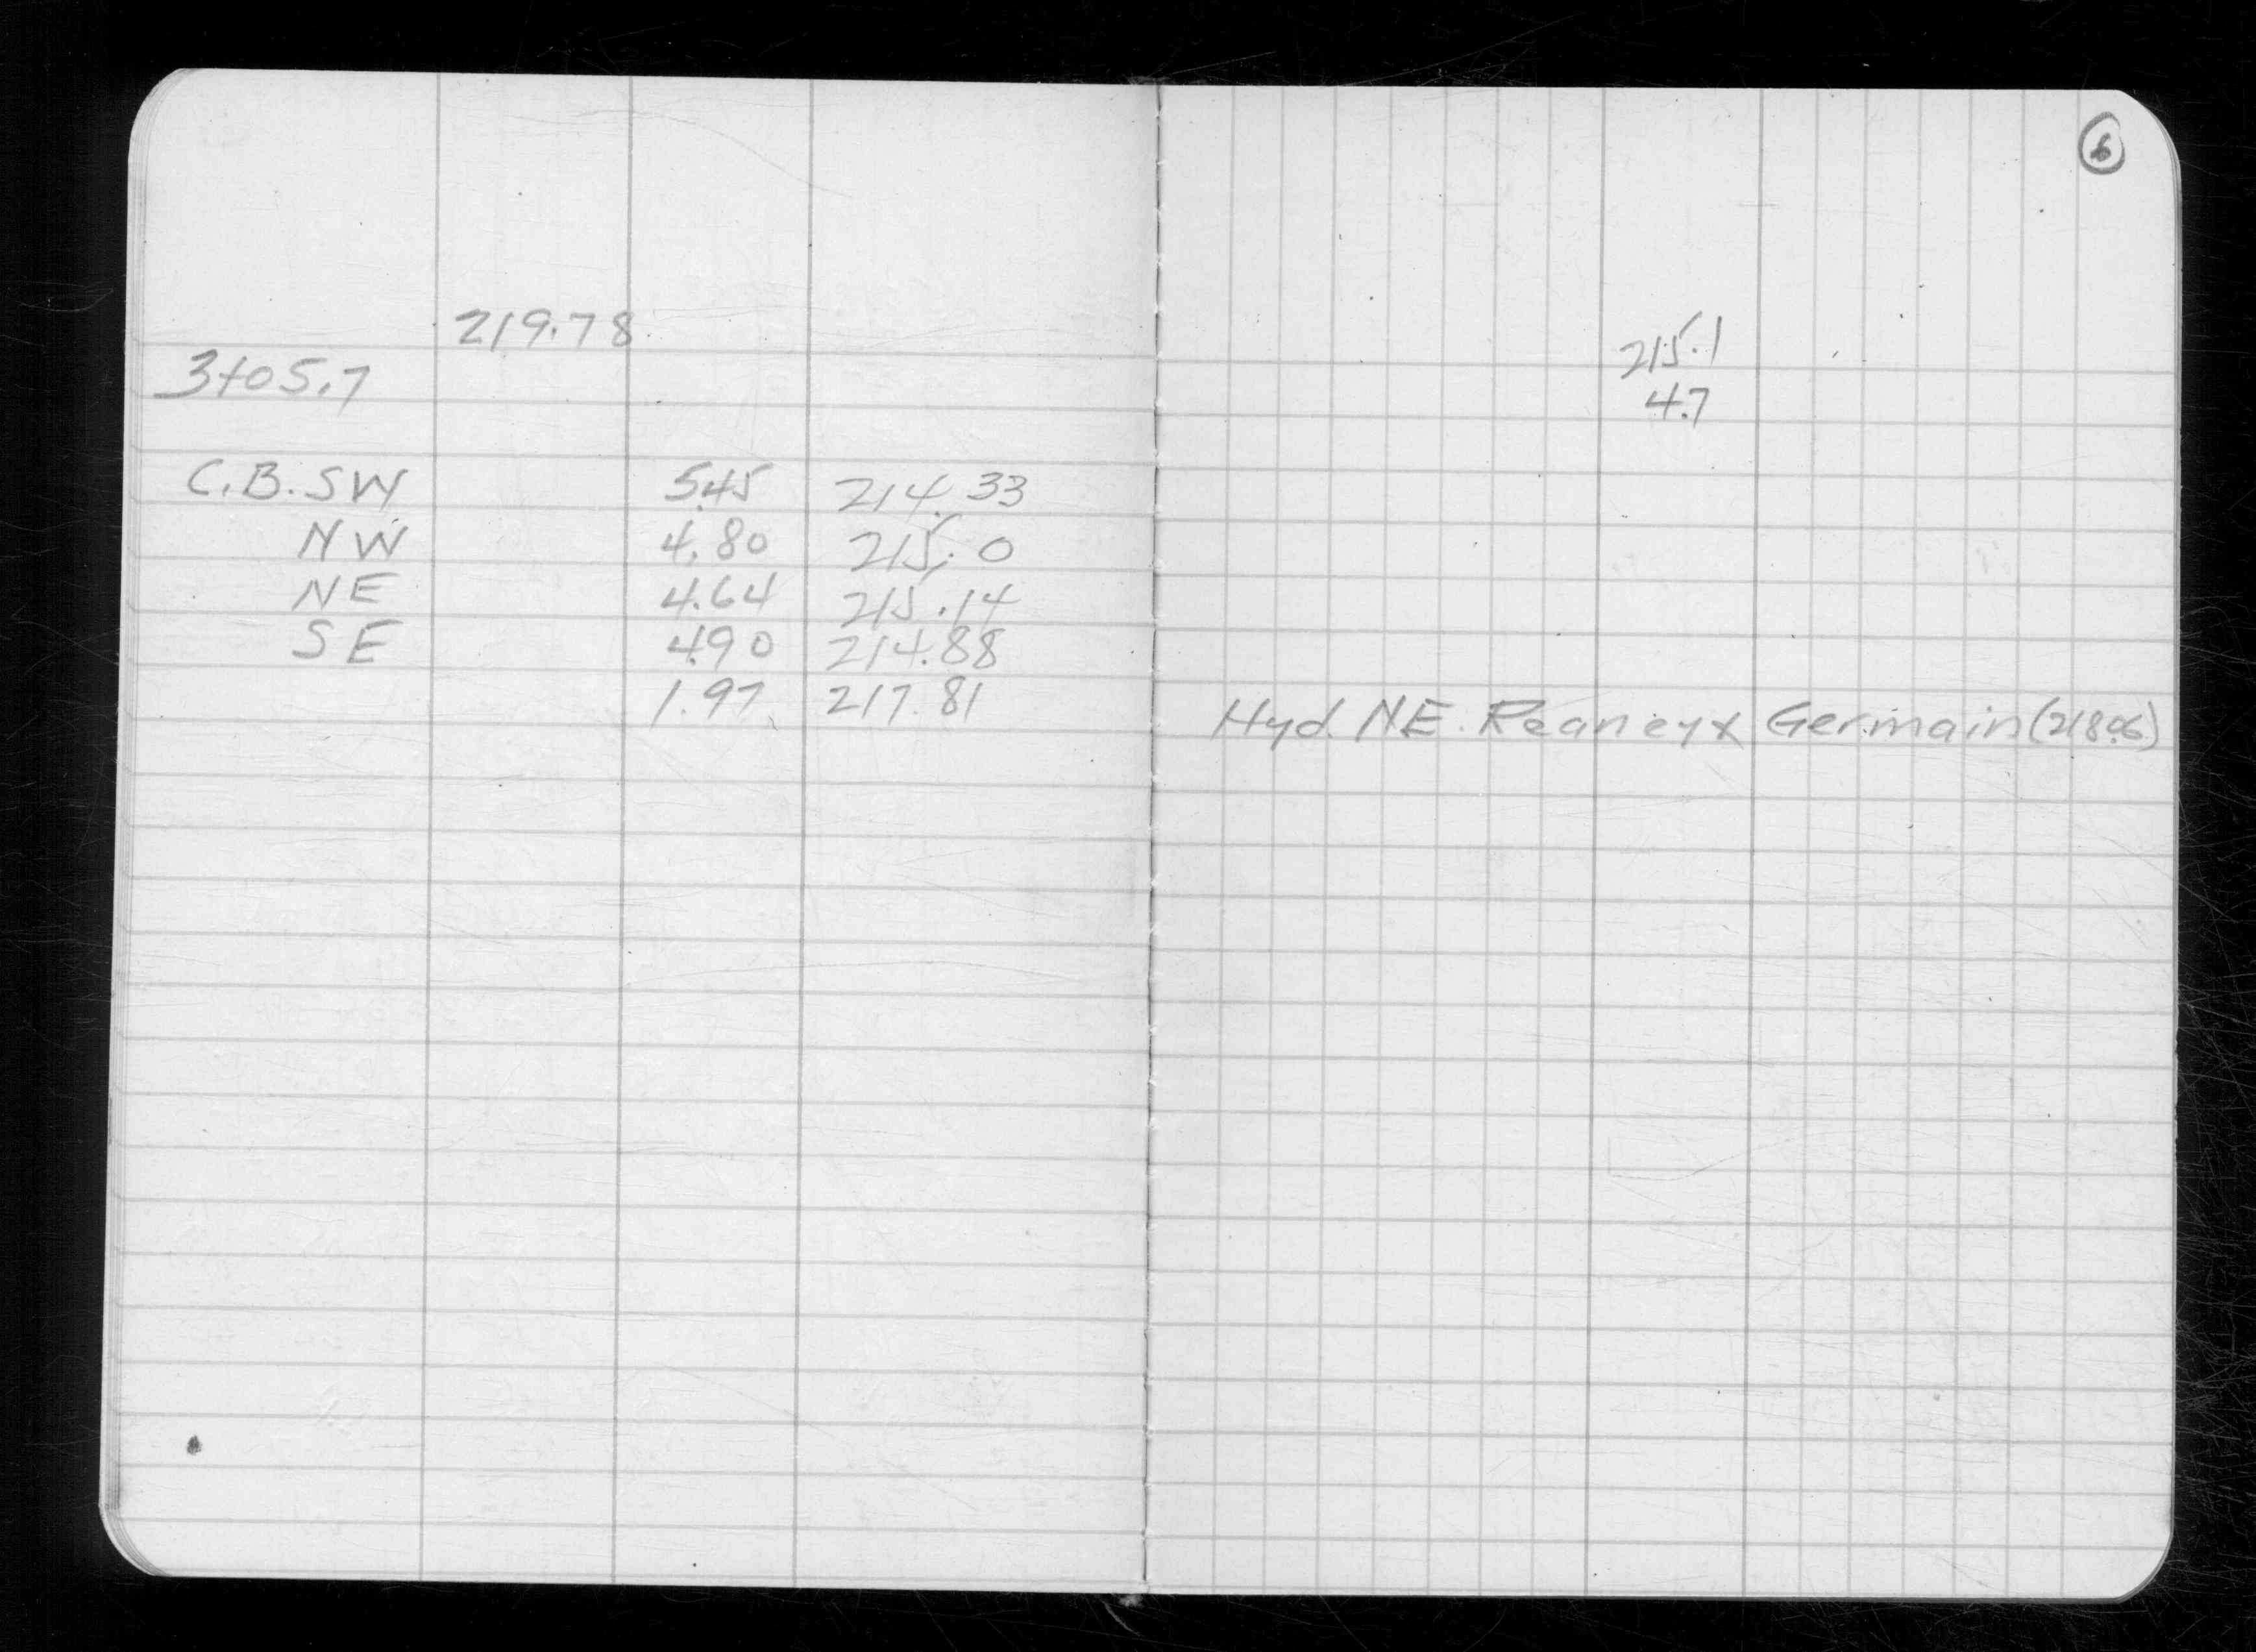 219.78
3+05.7
C.B. SW 5.45 214.33
NW 4.80 215.0
NE 4.64 215.14
SE 4.90 214.88
1.97 217.81
6
215.1
4.7
Hyd. NE. Reaney x Germain (218.06)